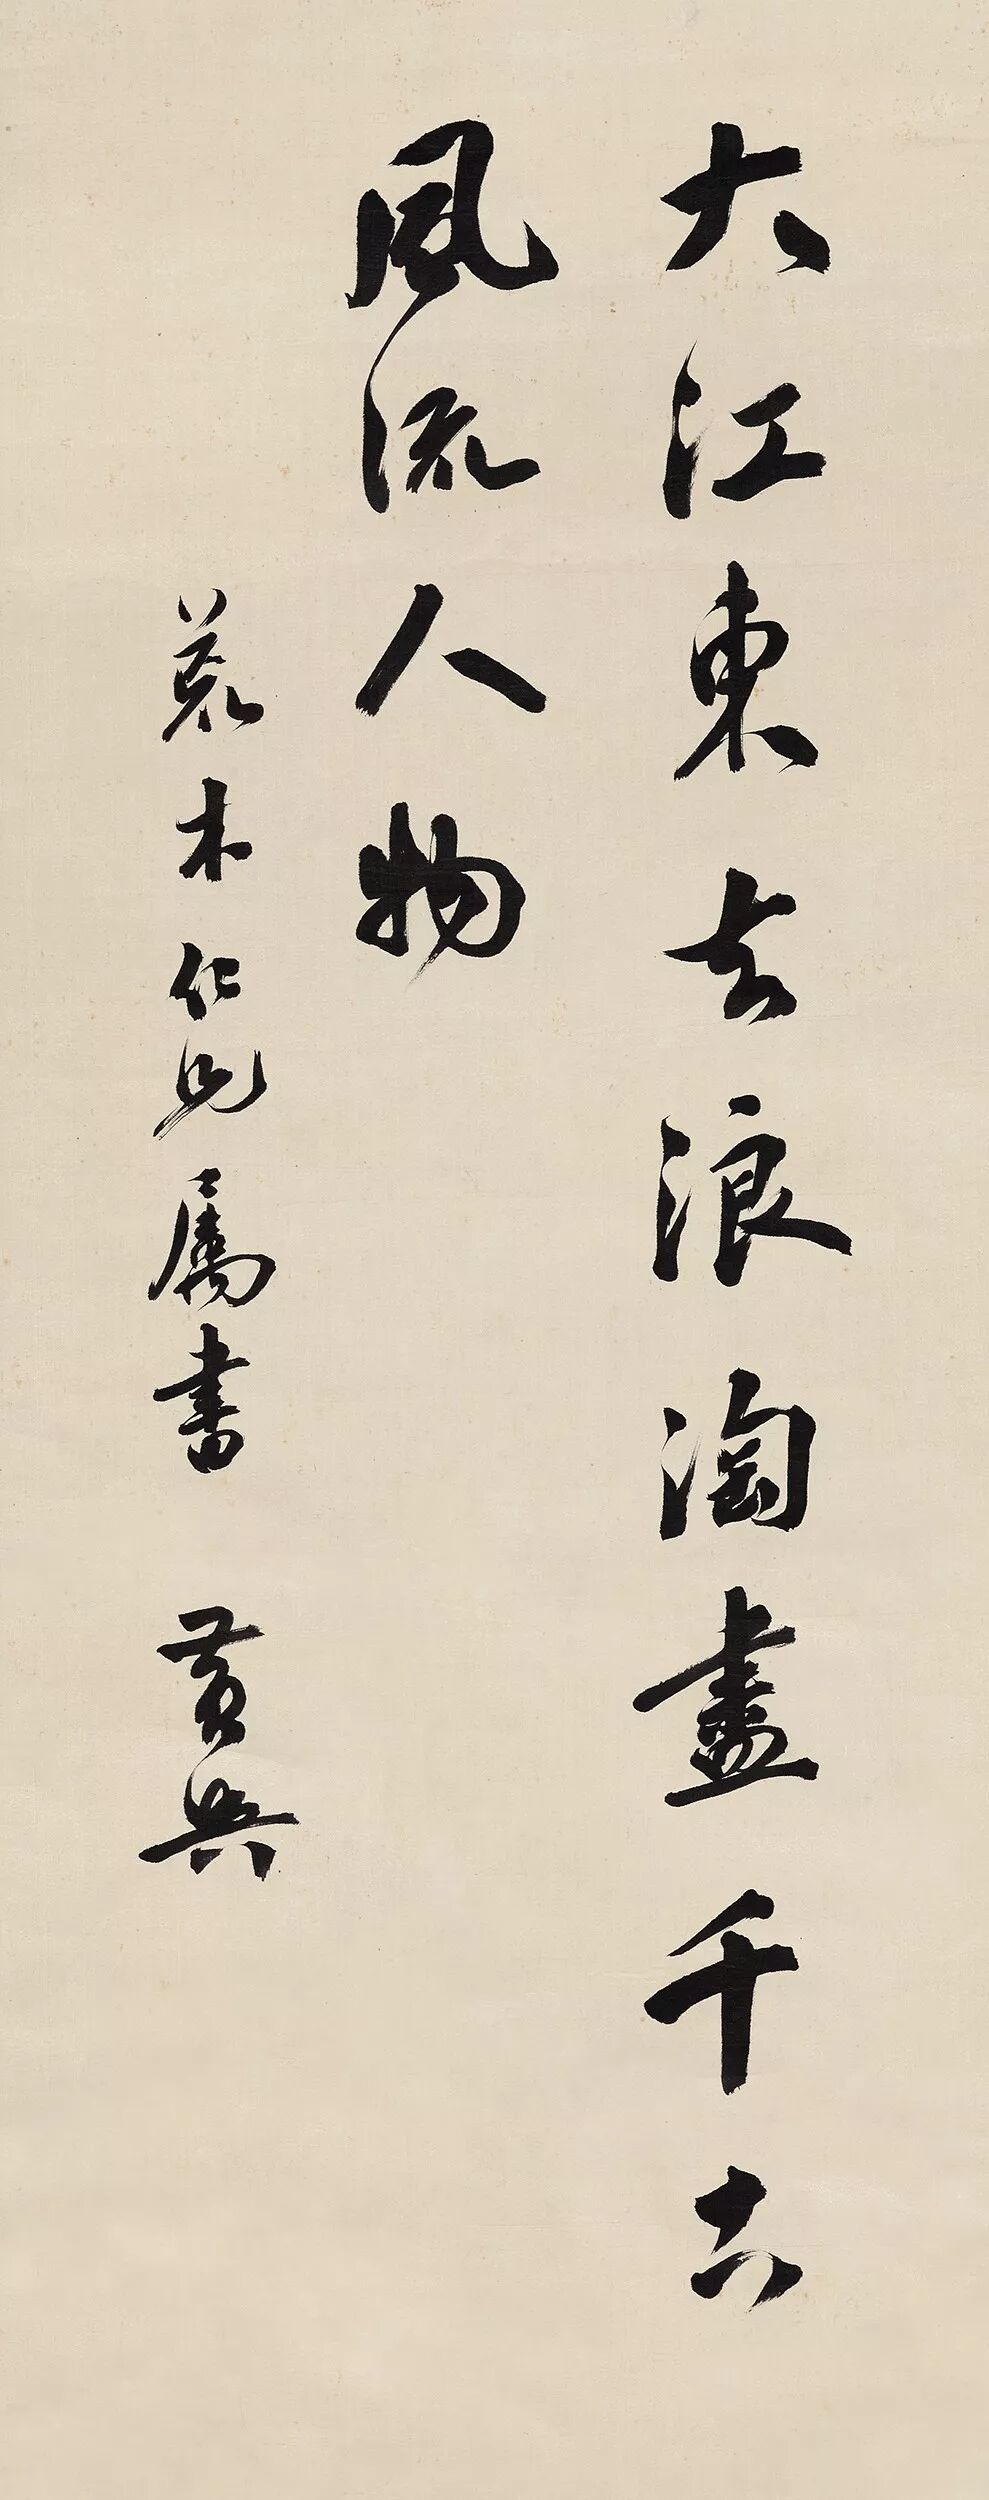 大江東去浪淘盡千古
風流人物
荒木仁兄屬書 黃興